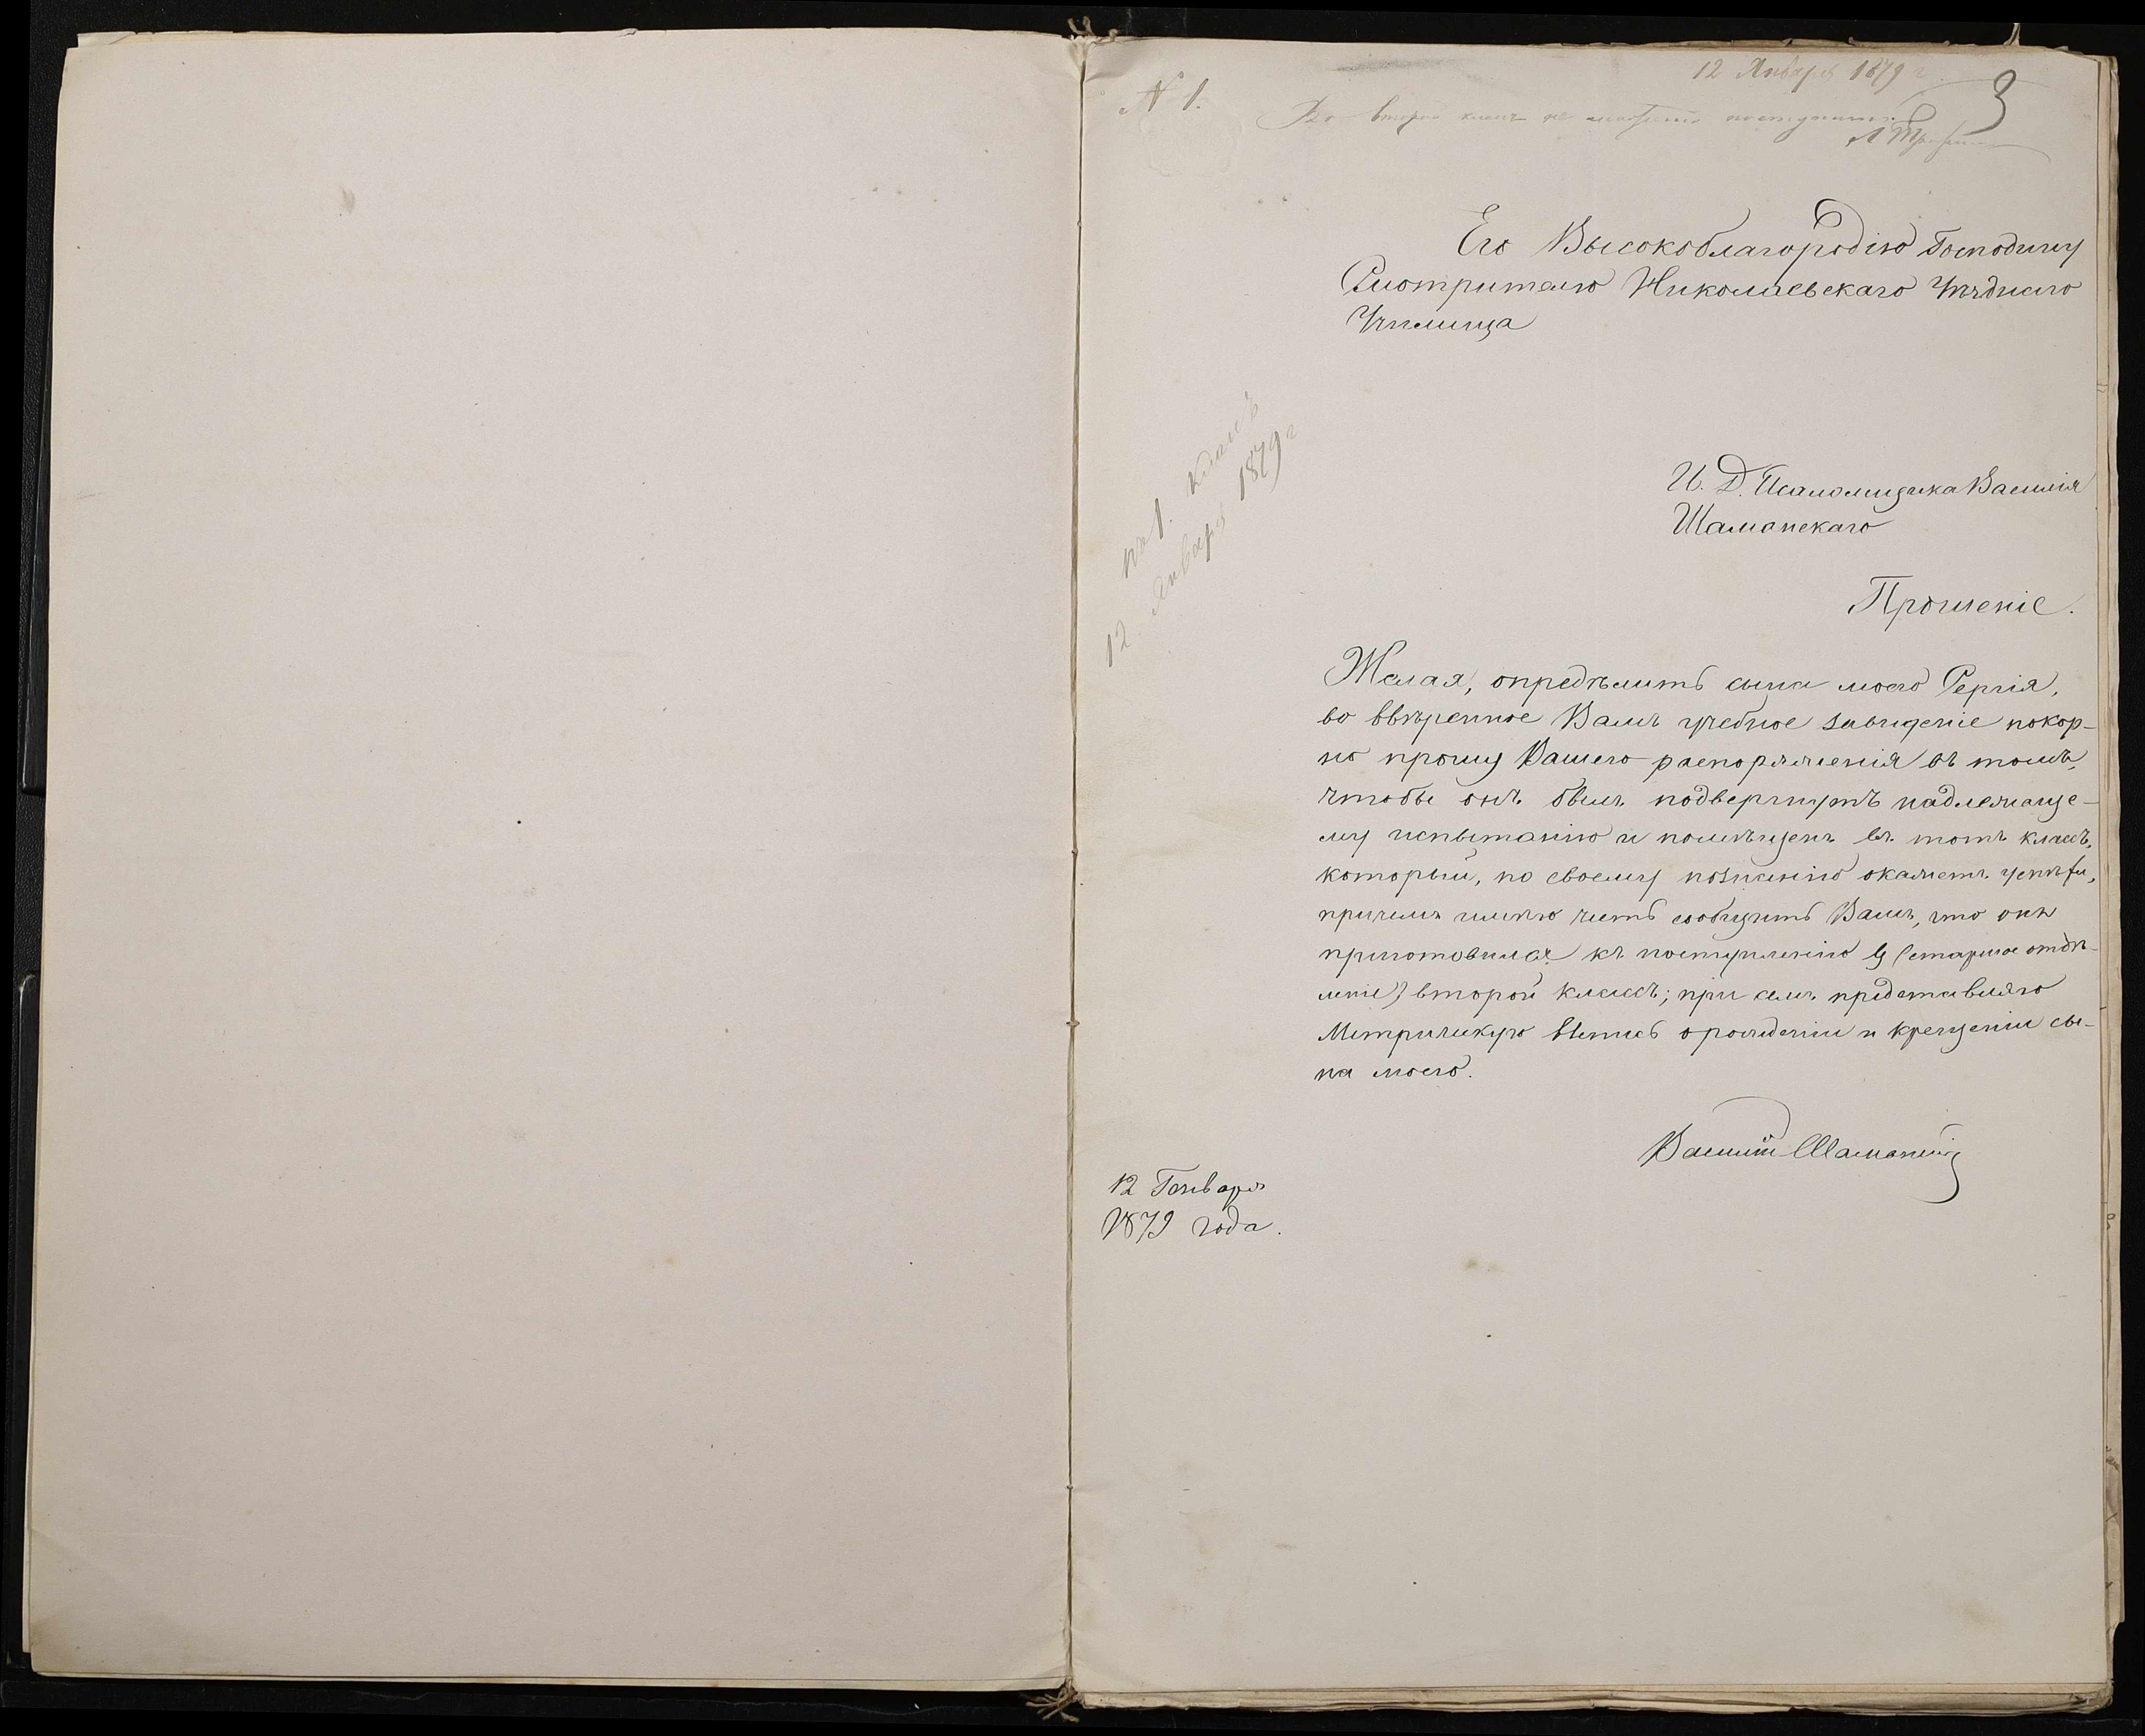 12 Января 1879 г.
№ 1.
3
Во второй классъ не можетъ поступить.
Его Высокоблагородію Господину
Смотрителю Николаевскаго Уѣзднаго
Училища
И. Д. Псаломщика Василія
Шаманскаго
Прошеніе.
на 1. классъ
12 Января 1879 г
Желая, опредѣлить сына моего Сергія,
во ввѣренное Вамъ учебное заведеніе покор-
но прошу Вашего распоряженія въ томъ,
чтобы онъ былъ подвергнутъ надлежаще-
му испытанію и помѣщенъ въ тотъ классъ,
который, по своему познанію окажетъ успѣхи,
причемъ имѣю честь сообщить Вамъ, что онъ
приготовился къ поступленію въ (старшое отдѣ-
леніе) второй классъ; при семъ представляю
Метрическую выпись о рожденіи и крещеніи сы-
на моего.
Василій Шаманскій
12 Генваря
1879 года.